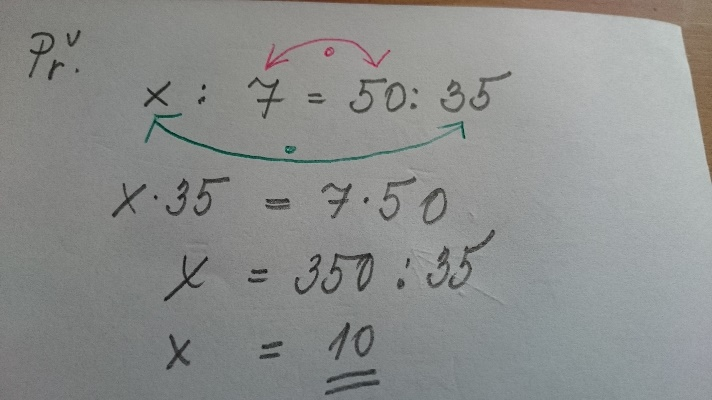 Př.
x : 7 = 50 : 35
x · 35 = 7 · 50
x = 350 : 35
x = 10